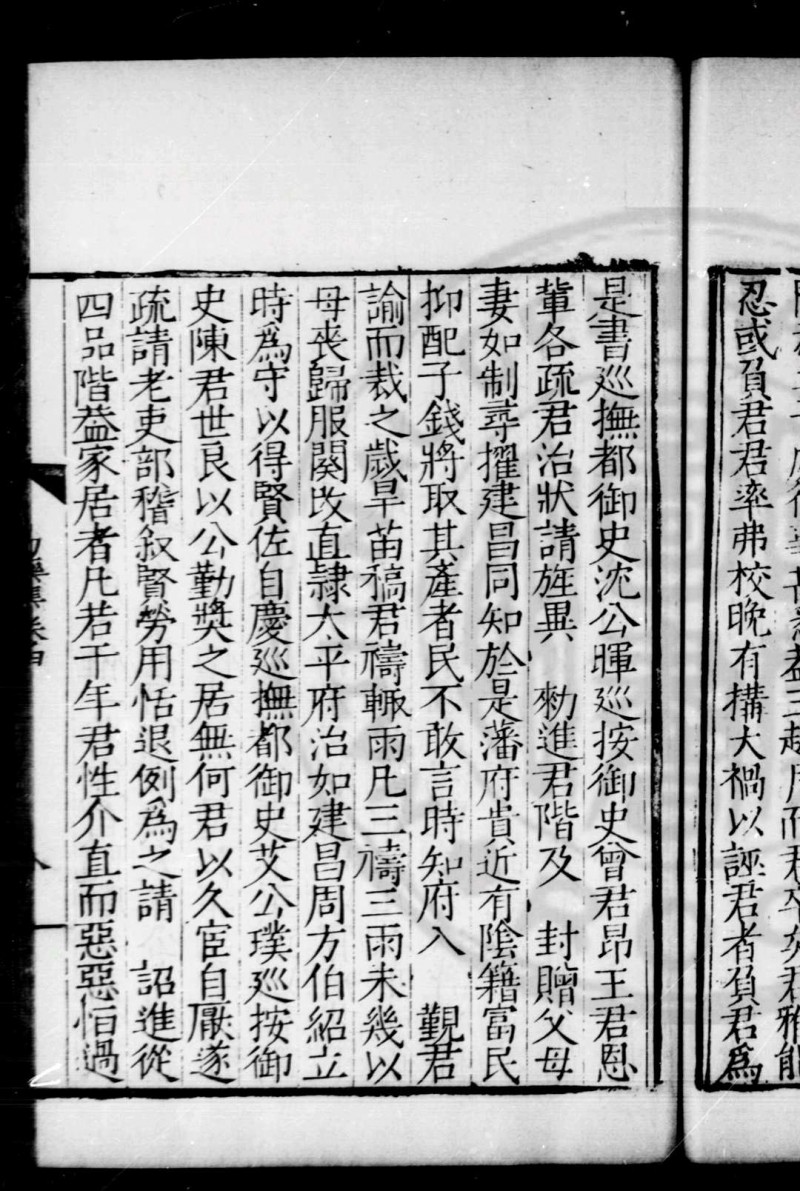 忍或負君君率弗校晚有搆大禍以誣君者負君爲
是書廵撫都御史沈公暉廵按御史曾君昂王君恩
軰各疏君治狀請旌異　勑進君階及　封贈父母
妻如制尋擢建昌同知於是藩府貴近有陰籍富民
抑配子錢將取其產者民不敢言時知府入　覲君
諭而裁之歲旱苗稿君禱輙雨凡三禱三雨未幾以
母喪歸服闋改直隷太平府治如建昌周方伯紹立
時爲守以得賢佐自慶廵撫都御史艾公璞廵按御
史陳君世良以公勤獎之居無何君以久宦自厭遂
疏請老吏部稽叙賢勞用恬退例爲之請　詔進從
四品階葢家居者凡若干年君性介直而惡惡怕過